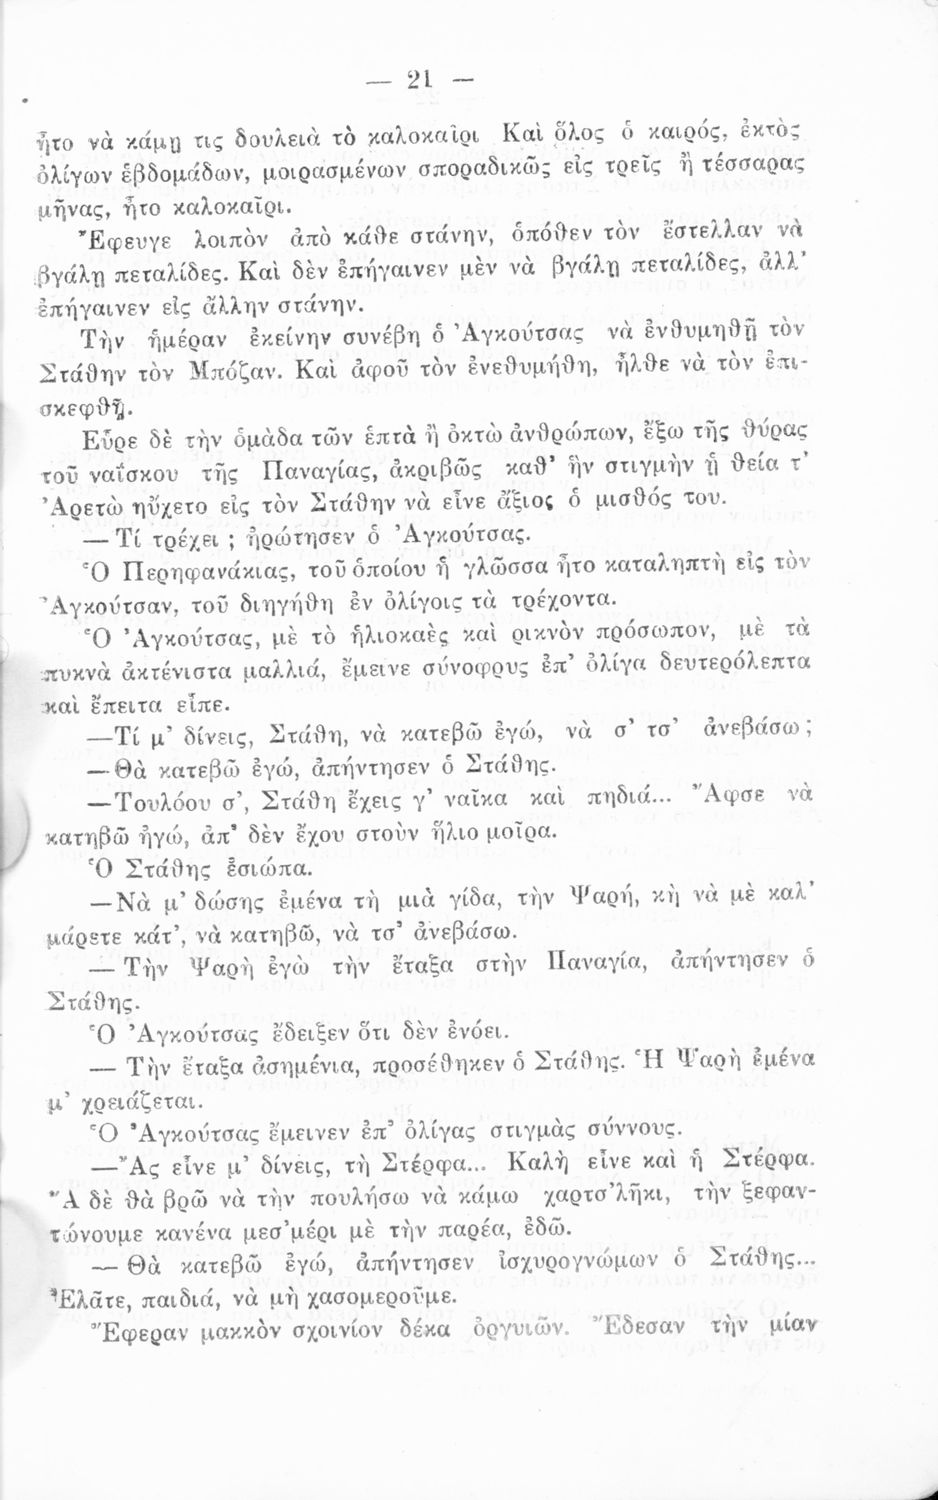 — 21 —
ἦτο νὰ κάμῃ τις δουλειὰ τὸ καλοκαῖρι Καὶ ὅλος ὁ καιρός, ἐκτὸς
ὀλίγων ἑβδομάδων, μοιρασμένων σποραδικῶς εἰς τρεῖς ἢ τέσσαρας
μῆνας, ἦτο καλοκαῖρι.
Ἔφευγε λοιπὸν ἀπὸ κάθε στάνην, ὁπόθεν τὸν ἔστελλαν νὰ
βγάλῃ πεταλίδες. Καὶ δὲν ἐπήγαινεν μὲν νὰ βγάλῃ πεταλίδες, ἀλλ’
ἐπήγαινεν εἰς ἄλλην στάνην.
Τὴν ἡμέραν ἐκείνην συνέβη ὁ Ἀγκούτσας νὰ ἐνθυμηθῇ τὸν
Στάθην τὸν Μπόζαν. Καὶ ἀφοῦ τὸν ἐνεθυμήθη, ἦλθε νὰ τὸν ἐπι-
σκεφθῇ.
Εὗρε δὲ τὴν ὁμάδα τῶν ἑπτὰ ἢ ὀκτὼ ἀνθρώπων, ἔξω τῆς θύρας
τοῦ ναΐσκου τῆς Παναγίας, ἀκριβῶς καθ’ ἣν στιγμὴν ἡ θεία τ’
Ἀρετὼ ηὔχετο εἰς τὸν Στάθην νὰ εἶνε ἄξιος ὁ μισθός του.
— Τί τρέχει ; ἠρώτησεν ὁ Ἀγκούτσας.
Ὁ Περηφανάκιας, τοῦ ὁποίου ἡ γλῶσσα ἦτο καταληπτὴ εἰς τὸν
Ἀγκούτσαν, τοῦ διηγήθη ἐν ὀλίγοις τὰ τρέχοντα.
Ὁ Ἀγκούτσας, μὲ τὸ ἡλιοκαὲς καὶ ρικνὸν πρόσωπον, μὲ τὰ
πυκνὰ ἀκτένιστα μαλλιά, ἔμεινε σύνοφρυς ἐπ’ ὀλίγα δευτερόλεπτα
καὶ ἔπειτα εἶπε.
—Τί μ’ δίνεις, Στάθη, νὰ κατεβῶ ἐγώ, νὰ σ’ τσ’ ἀνεβάσω ;
—Θὰ κατεβῶ ἐγώ, ἀπήντησεν ὁ Στάθης.
—Τουλόου σ’, Στάθη ἔχεις γ’ ναῖκα καὶ πηδιά... Ἄφσε νὰ
κατηβῶ ἠγώ, ἀπ’ δὲν ἔχου στοὺν ἥλιο μοῖρα.
Ὁ Στάθης ἐσιώπα.
—Νὰ μ’ δώσης ἐμένα τὴ μιὰ γίδα, τὴν Ψαρή, κὴ νὰ μὲ καλ’
μάρετε κάτ’, νὰ κατηβῶ, νὰ τσ’ ἀνεβάσω.
— Τὴν Ψαρὴ ἐγὼ τὴν ἔταξα στὴν Παναγία, ἀπήντησεν ὁ
Στάθης.
Ὁ Ἀγκούτσας ἔδειξεν ὅτι δὲν ἐνόει.
— Τὴν ἔταξα ἀσημένια, προσέθηκεν ὁ Στάθης. Ἡ Ψαρὴ ἐμένα
μ’ χρειάζεται.
Ὁ Ἀγκούτσας ἔμεινεν ἐπ’ ὀλίγας στιγμὰς σύννους.
—Ἂς εἶνε μ’ δίνεις, τὴ Στέρφα... Καλὴ εἶνε καὶ ἡ Στέρφα.
Ἂ δὲ θὰ βρῶ νὰ τὴν πουλήσω νὰ κάμω χαρτσ’λῆκι, τὴν ξεφαν-
τώνουμε κανένα μεσ’μέρι μὲ τὴν παρέα, ἐδῶ.
— Θὰ κατεβῶ ἐγώ, ἀπήντησεν ἰσχυρογνώμων ὁ Στάθης...
Ἐλᾶτε, παιδιά, νὰ μὴ χασομεροῦμε.
Ἔφεραν μακκὸν σχοινίον δέκα ὀργυιῶν. Ἔδεσαν τὴν μίαν